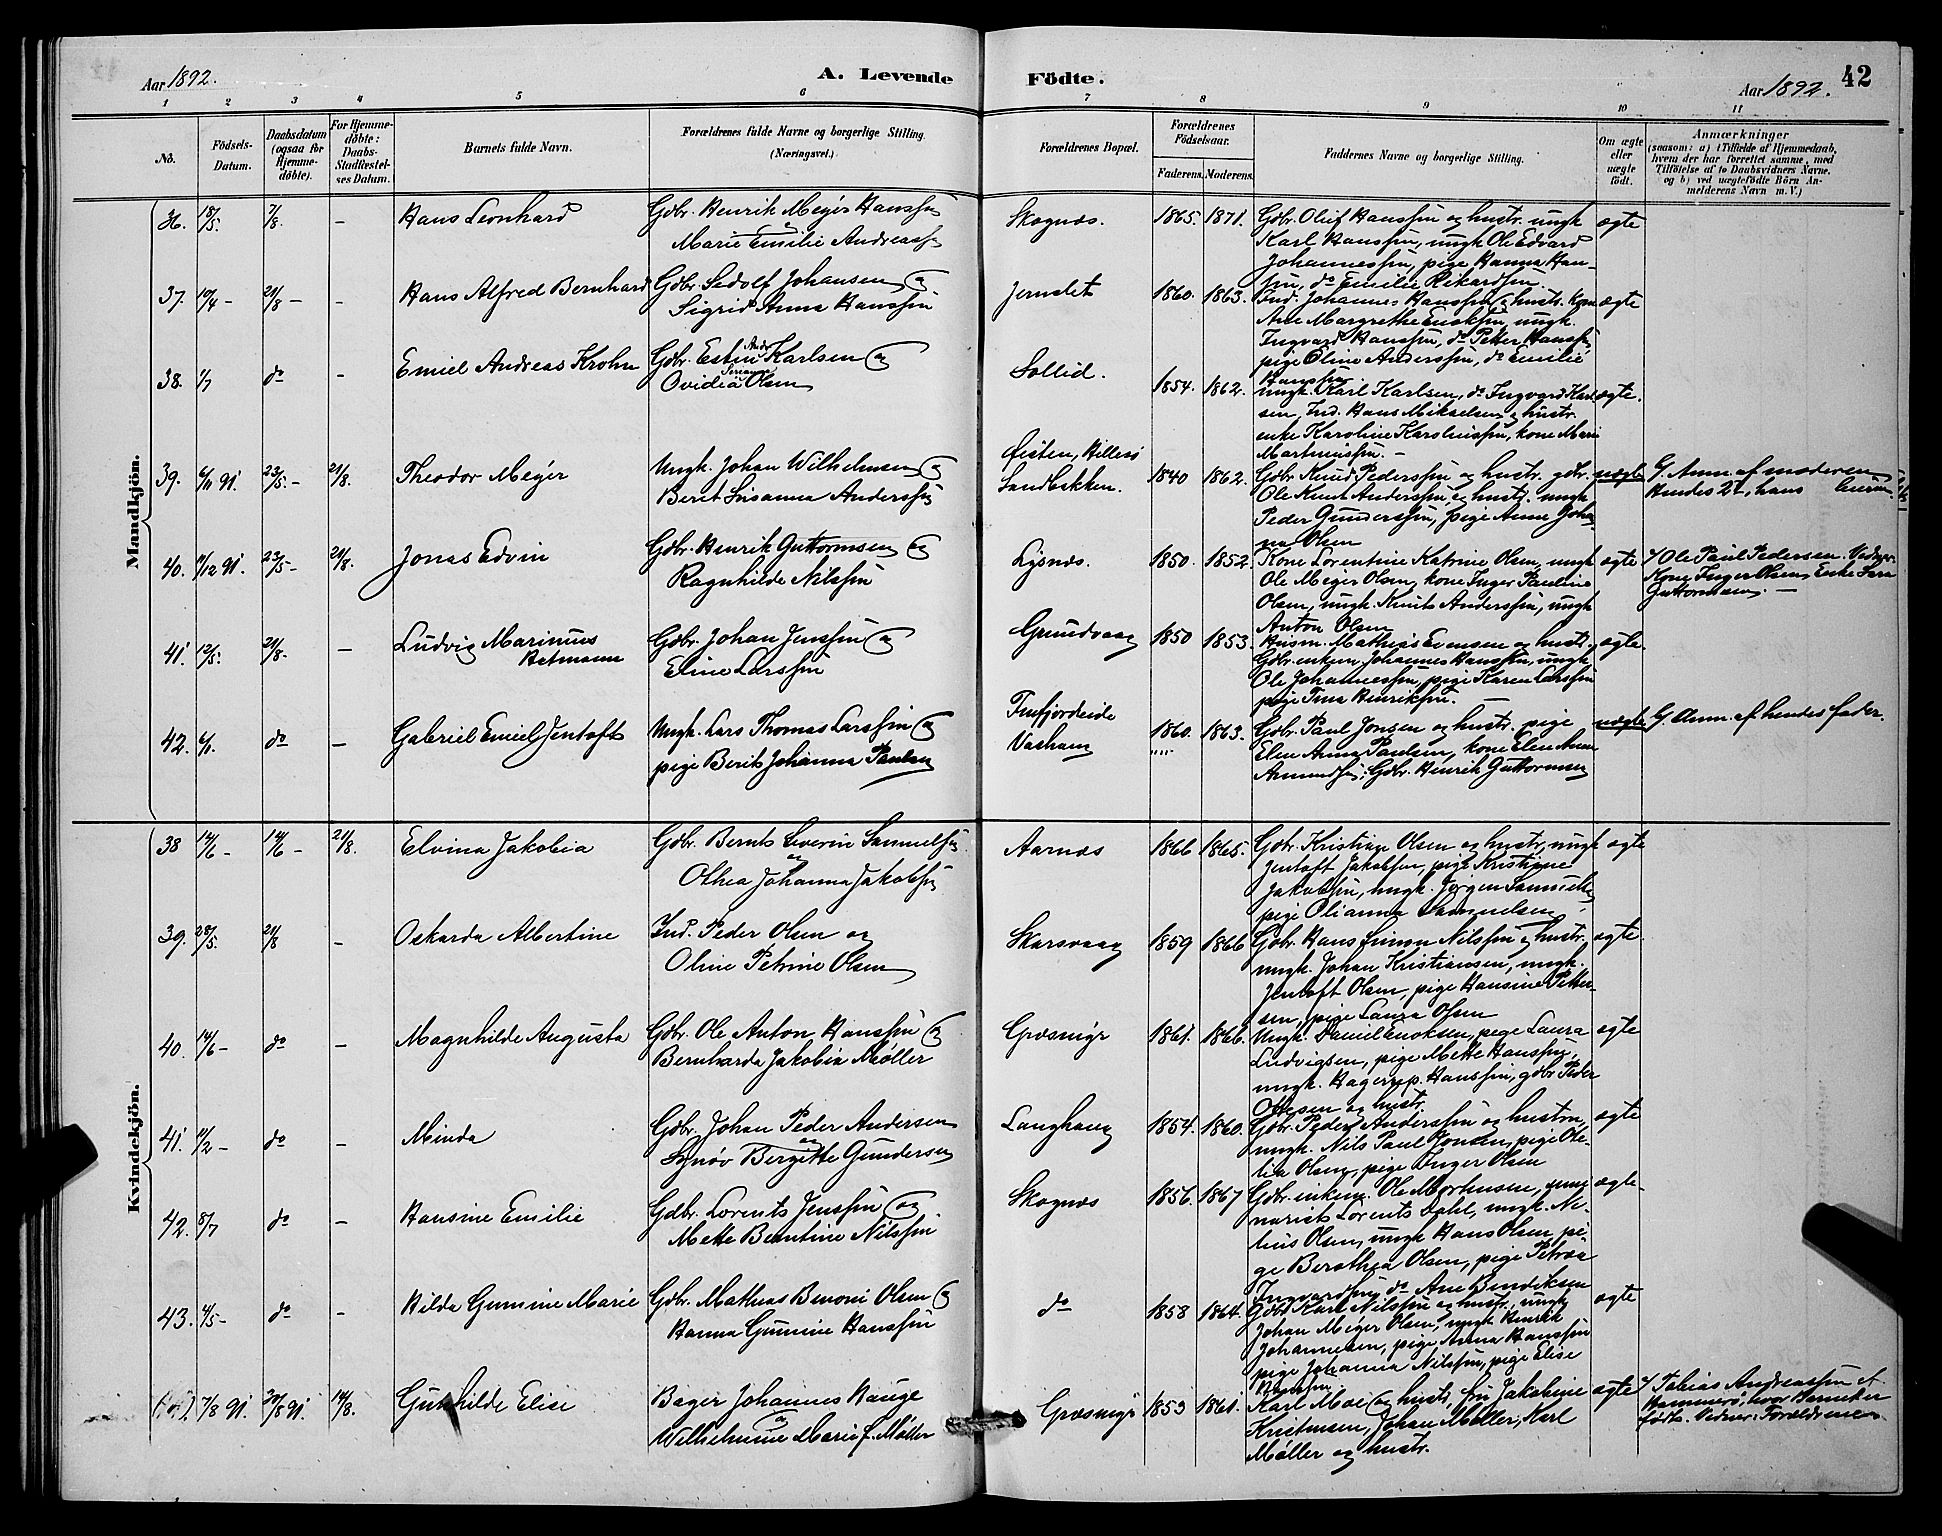 Aar 1892.
A. Levende Födte.
Aar 1892.
42
1 2 3 4 5 6 7 8 9 10 11
No.
Födsels-Datum.
Daabsdatum (ogsaa for Hjemmedöbte).
For Hjemmedöbte: Daabs-Stadfestelses Datum.
Barnets fulde Navn.
Forældrenes fulde Navne og borgerlige Stilling. (Næringsvei.)
Forældrenes Bopæl.
Forældrenes Födselsaar.
Faderens. Moderens.
Faddernes Navne og borgerlige Stilling.
Om ægte eller uægte födt.
Anmærkninger
(saasom: a) i Tilfælde af Hjemmedaab,
hvem der har forrettet samme, med
Tilföielse af to Daabsvidners Navne.
og b) ved uægtefödte Börn An-
melderens Navn m. V.)
Mandkjön.
36. 18/5. 7/8. – Hans Leonhard
Gdbr. Henrik Meyer Hanssen
og Marie Emilie Andreass.
Skognæs. 1865. 1871.
Gdbr. Oluf Hanssen og hustr. ungk
Karl Hanssen, ungk Ole Edvard
Johannessen, pige Hanna Han-
sen, do Emilie Rikardsen.
ægte
37. 10/4 – 21/8 – – Hans Alfred Bernhard
Gdbr. Sedolf Johansen og
Sigrid Anna Hanssen
Jernslet 1860. 1863.
Ind. Johannes Hanssen og hustr. kone
Ane Margrethe Enoksen, ungk.
Ingvard Hanssen, do Petter Hanss.,
pige Eline Anderssen, do Emilie
Hanssen
ægte
38. 1/7 do – Emiel Andreas Krohn
Gdbr. Estin Andr. Karlsen og
Ovidia Olsen
Sollid. 1854. 1862.
ungk. Karl Karlsen, do Ingvard Karl-
sen, Ind. Hans Mikkelsen og hustr.
enke Karoline Karolussen, kone Marie
Martinussen. –
ægte.
39. 6/11 91. 23/5. – 21/8. Theodor Meyer
Ungk. Johan Wilhelmsen og
Berit Susanna Anderssen
Øisten, Hillesø
Sandbakken. 1840 1862.
Gdbr. Knud Pederssen og hustr. gdbr.
Ole Knut Anderssen og hustr. ungk
Peder Gunderssen, pige Anne Joha-
na Olsen
uægte
G. Anm. af moderen
Hendes 2det, hans
40. 11/12 91. 23/5 – 21/8. Jonas Edvin
Gdbr. Henrik Guttormsen og
Ragnhilde Nilssen
Lysnæs. 1850. 1852
Kone Lorentine Katrine Olsen, ungk
Ole Meyer Olsen, kone Inger Pauline
Olsen, ungk. Knut Anderssen, ungk
Anton Olsen
ægte
Ole Paul Pedersen. Vidner:
Kone Inger Olsen, Enke Sara
Guttormsen. –
41. 12/5. 21/8. – Ludvig Marinius
Hetmann
Gdbr. Johan Jenssen og
Eline Larssen
Grundvaag 1850 1853.
Husm. Mathias Evensen og hustr.
Gdbr. enkem. Johannes Hanssen, ungk
Ole Johannessen, pige Karen Larssen
pige Tina Henriksen.
ægte.
42. 6/1. do – Gabriel Emiel Jentoft
Ungk. Lars Thomas Larssen og
pige Berit Johanna Paulsen
Finfjordeide
Vashaug 1860. 1863.
Gdbr. Paul Jonsen og hustr. pige
Elen Anna Paulsen, kone Elen Anna
Amundsen, Gdbr. Henrik Guttormsen
uægte
G. Anm. af hendes fader.
Kvindekjön.
38 12/6 – 14/6 – 21/8. Elvina Jakobia
Gdbr. Bernt Severin Samuelsen
og
Othea Johanna Jakobsen
Aarnæs 1866 1865.
Gdbr. Kristian Olsen og hustr, ungk
Jentoft Jakobsen, pige Kristine
Jakobsen, ungk. Jørgen Samuelsen
pige Olianna Samuelsen.
ægte
39. 28/5. 21/8 – Oskarda Albertine
Ind. Peder Olsen og
Oline Petrine Olsen
Skarsvaag 1859 1866
Gdbr. Hans Simon Nilssen og hustr.
ungk. Johan Kristiansen, ungk.
Jentoft Olsen, pige Hansine Petter-
sen, pige Laura Olsen
ægte
40. 14/6 – do – Magnhilde Augusta
Gdbr. Ole Anton Hanssen og
Bernharda Jakobia Møller
Græsmyr 1861. 1866.
Ungk. Daniel Enoksen, pige Laura
Ludvigsen, pige Mette Hanssen,
ungk. Hagerup Hanssen, gdbr Peder
Ottesen og hustr.
ægte
41. 11/2 – do – Minda
Gdbr. Johan Peder Andersen
og
Synøv Bergitte Gundersen
Langhaug 1854. 1860.
Gdbr. Peder Anderssen og hustru,
ungk. Nils Paul Jonsen, pige Ole-
lia Olsen, pige Inger Olsen
ægte
42. 8/7 do – Hansine Emilie
Gdbr. Lorents Jenssen og
Mette Berntine Nilssen
Skognæs 1856. 1867
Gdbr. enkem. Ole Morhusen, semi-
narist Lorents Dahl, ungk. Ne-
lius Olsen, ungk Hans Olsen, pi-
ge Berathea Olsen, pige Petrea
Ingvardsen, do Ane Bendiksen
ægte
43. 4/5 – do – Hilda Gunnine Marie
Gdbr. Mathias Benoni Olsen og
Hanna Gunnine Hanssen
do 1858 1864.
Gdbr Karl Nilssen og hustr., ungk
Johan Meyer Olsen, ungk Henrik
Johannesen, pige Anna Hanssen
pige Johanna Nilssen, pige Elise
Hanssen
ægte
7/8 91. 30/8 91. 14/8. Gunhilde Elise
Bager Johannes Hauge
og
Wilhelmine Marie f. Møller
Græsmyr 1853 1861.
Karl Moe og hustr, fru Jakobine
Kristensen, Johan Møller, Karl
Møller og hustr.
ægte
Tobias Andreassen af
Hammerø, hvor Barnet er
født. Vidner: Forældrene.